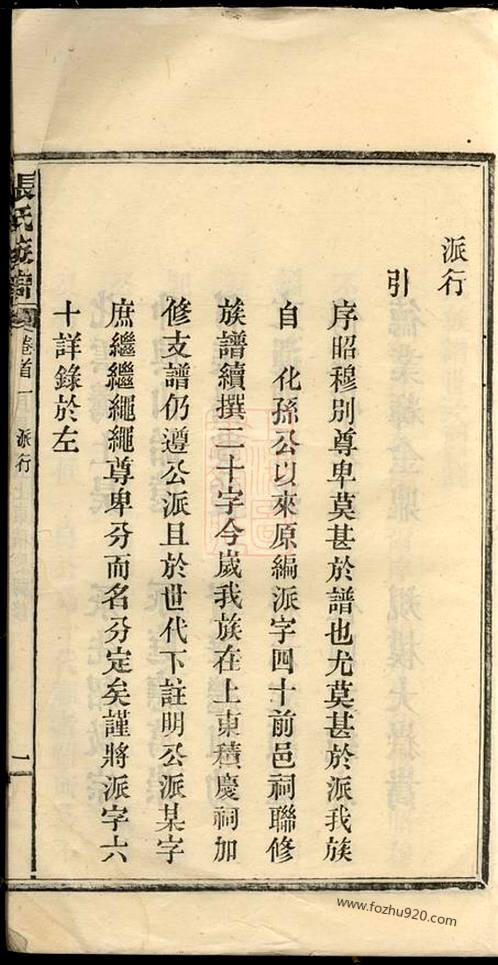 派行
引
序昭穆別尊卑莫甚於譜也尤莫甚於派我族
自　化孫公以來原編派字四十前邑祠聯修
族譜續撰二十字今歲我族在上東積慶祠加
修支譜仍遵公派且於世代下註明公派某字
庶繼繼繩繩尊卑分而名分定矣謹將派字六
十詳錄於左
張氏族譜　卷首一　派行　一
www.fozhu920.com